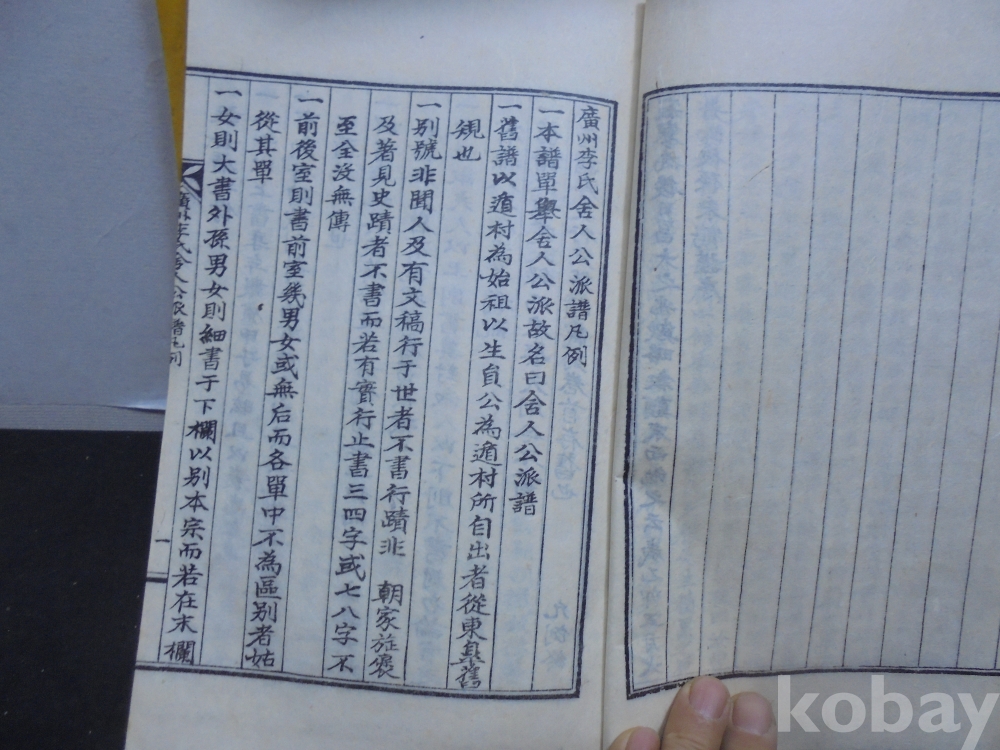 廣州李氏舍人公派譜凡例
一本譜單擧舍人公派故名曰舍人公派譜
一舊譜以遁村為始祖以生員公為遁村所自出者從東臯舊
規也
一別號非聞人及有文稿行于世者不書行蹟非 朝家旌褒
及著見史蹟者不書而若有實行止書三四字或七八字不
至全沒無傳
一前後室則書前室幾男女或無后而各單中不為區別者姑
從其單
一女則大書外孫男女則細書于下欄以別本宗而若在末欄
廣州李氏舍人公派譜凡例
一
kobay